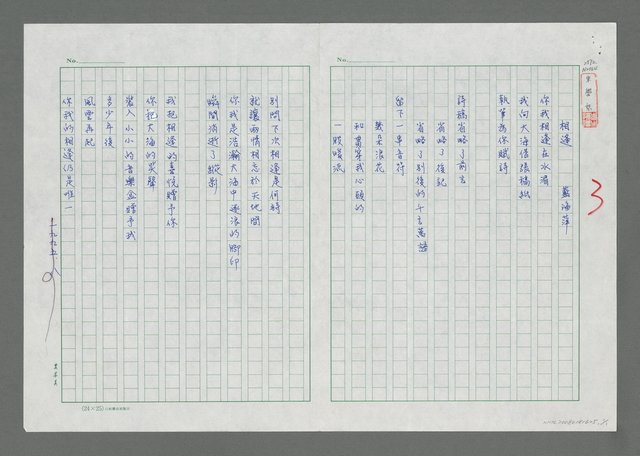 No.
相逢
藍海萍
你我相逢在水湄
我向大海借張稿紙
執筆為你賦詩
詩稿省略了前言
省略了後記
省略了別後的千言萬語
留下一串音符
幾朵浪花
和貫穿我心頭的
一股暖流
3
No.
別問下次相逢是何時
就讓兩情相忘於天地間
你我是浩瀚大海中逐浪的腳印
瞬間消逝了蹤影
我把相逢的喜悅贈予你
你把大海的笑聲
裝入小小的音樂盒贈予我
多少年後
風雲再起
你我的相逢仍是唯一
一九九五、八
(24×25)